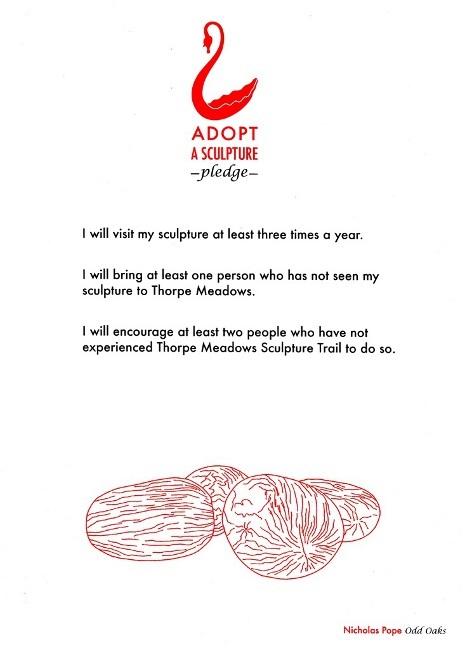 ADOPT
A SCULPTURE
–pledge–
I will visit my sculpture at least three times a year.
I will bring at least one person who has not seen my
sculpture to Thorpe Meadows.
I will encourage at least two people who have not
experienced Thorpe Meadows Sculpture Trail to do so.
Nicholas Pope Odd Oaks